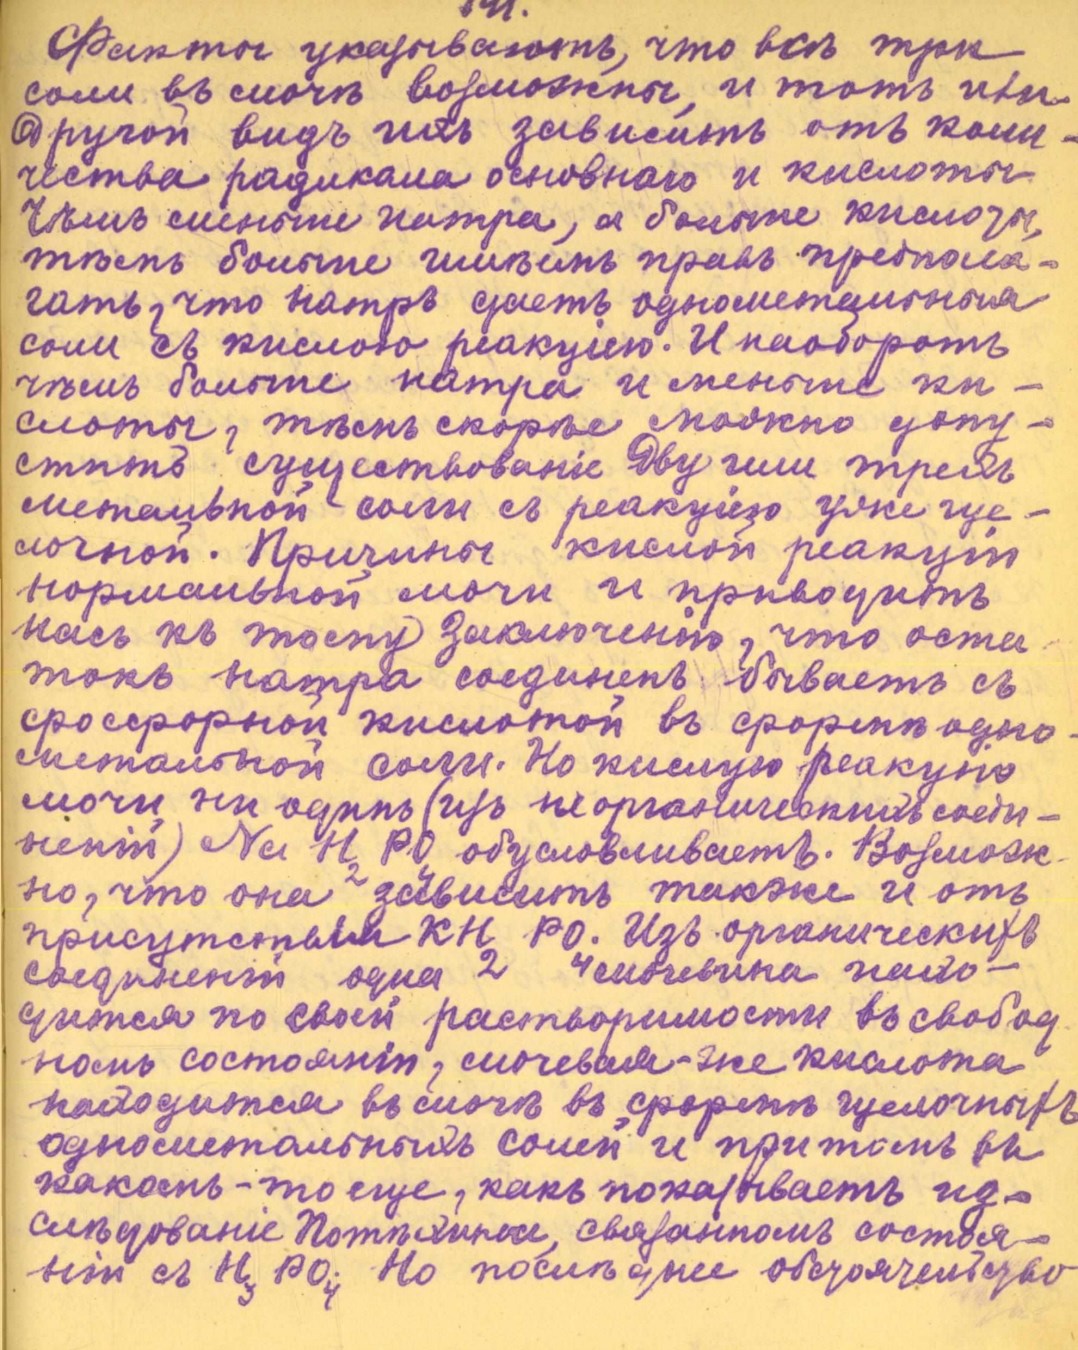 141.
Факты указываютъ, что всѣ три
соли въ мочѣ возможны, и тотъ или
другой видъ ихъ зависитъ отъ коли-
чества радикала основнаго и кислоты.
Чѣмъ меньше натра, а больше кислоты,
тѣмъ больше имѣемъ правъ предпола-
гать, что натръ даетъ однометальныя
соли съ кислою реакціею. И наоборотъ
чѣмъ больше натра и меньше ки-
слоты, тѣмъ скорѣе можно допу-
стить существованіе дву или трехъ
метальной соли съ реакціею уже ще-
лочной. Причины кислой реакціи
нормальной мочи и приводитъ
насъ къ тому заключенію, что оста
токъ натра соединенъ бываетъ съ
фосфорной кислотой въ формѣ одно-
метальной соли. Но кислую реакцію
мочи ни одинъ (изъ неорганическихъ соеди-
неній) Na H2 PO4 обусловливаетъ. Возмож-
но, что она зависитъ также и отъ
присутствія KH2 PO4. Изъ органическихъ
соединеній одна мочевина нахо-
дится по своей растворимости въ свобод
номъ состояніи, мочевая-же кислота
находится въ мочѣ въ формѣ щелочныхъ
однометальныхъ солей и притомъ въ
какомъ-то еще, какъ показываетъ из-
слѣдованіе Потѣхина, связанномъ состоя-
ніи съ H3 PO4. Но послѣднее обстоятельство